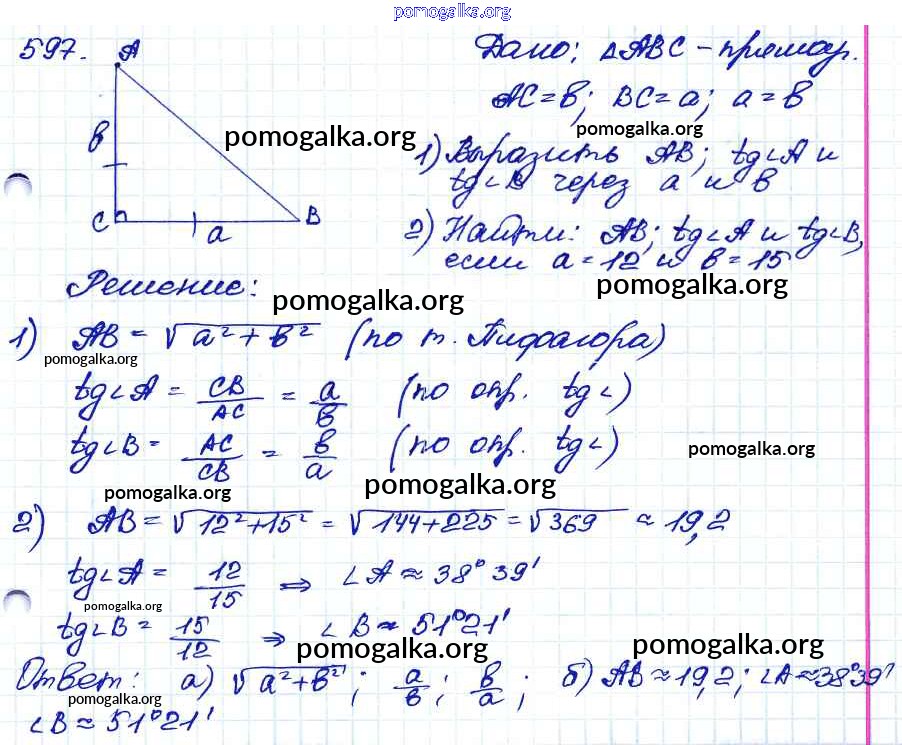 pomogalka.org
597.
A
в
C
a
B
Дано: ΔABC - прямоуг.
AC = в; BC = a; a = в
pomogalka.org
pomogalka.org
1) Выразить AB; tg∠A и
tg∠B через a и в
2) Найти: AB; tg∠A и tg∠B,
если a = 12 и в = 15
Решение:
pomogalka.org
pomogalka.org
1) AB = √a² + в² (по т. Пифагора)
pomogalka.org
tg∠A = CB/AC = a/в (по опр. tg∠)
tg∠B = AC/CB = в/a (по опр. tg∠)
pomogalka.org
pomogalka.org
pomogalka.org
2) AB = √12² + 15² = √144 + 225 = √369 ≈ 19,2
tg∠A = 12/15 ⇒ ∠A ≈ 38°39'
pomogalka.org
tg∠B = 15/12 ⇒ ∠B ≈ 51°21'
pomogalka.org
pomogalka.org
Ответ: а) √a² + в²; a/в; в/a; б) AB ≈ 19,2; ∠A ≈ 38°39'
pomogalka.org
∠B ≈ 51°21'